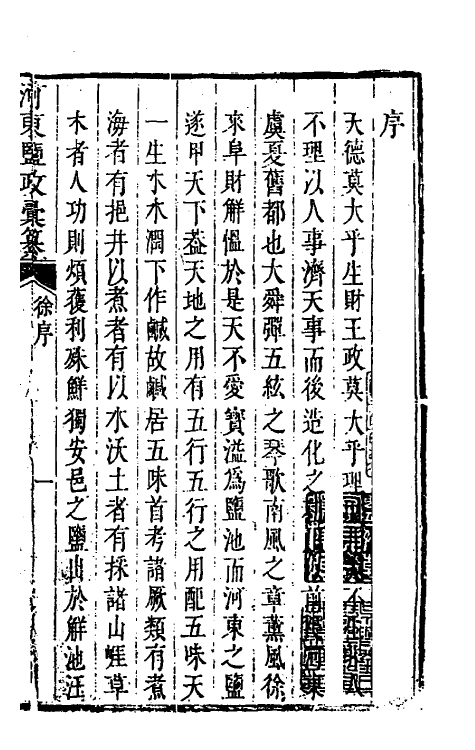 序
天德莫大乎生財王政莫大乎理
不理以人事濟天事而後造化之
虞夏舊都也大舜彈五絃之琴歌南風之章薰風徐
來阜財解慍於是天不愛寶溢爲鹽池而河東之鹽
遂甲天下葢天地之用有五行五行之用配五味天
一生水木潤下作鹹故鹹居五味首考諸厥類有煮
海者有挹井以煮者有以水沃土者有採諸山崕草
木者人功則煩獲利殊鮮獨安邑之鹽出於解池汪
河東鹽政彙纂
徐序
一